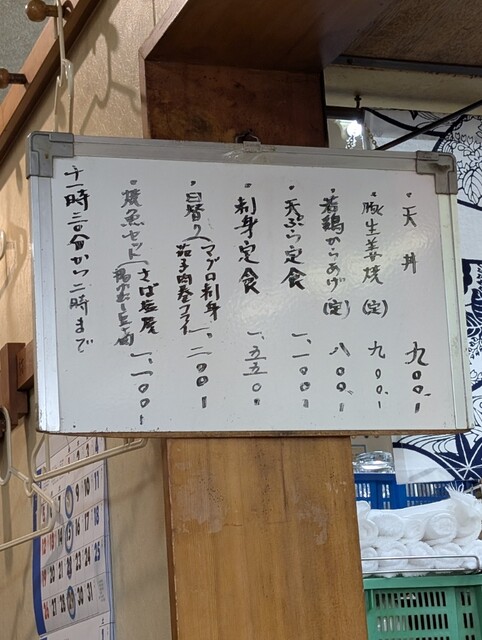 ・天丼 九〇〇、
・豚生姜焼(定) 九〇〇、
・若鶏からあげ(定) 八〇〇、
・天ぷら定食 一、一〇〇、
・刺身定食 一、五五〇、
・日替り(マグロ刺身 茄子肉巻フライ 一、二〇〇、
・焼魚セット(さば塩焼 一、一〇〇、
十一時三〇分から二時まで